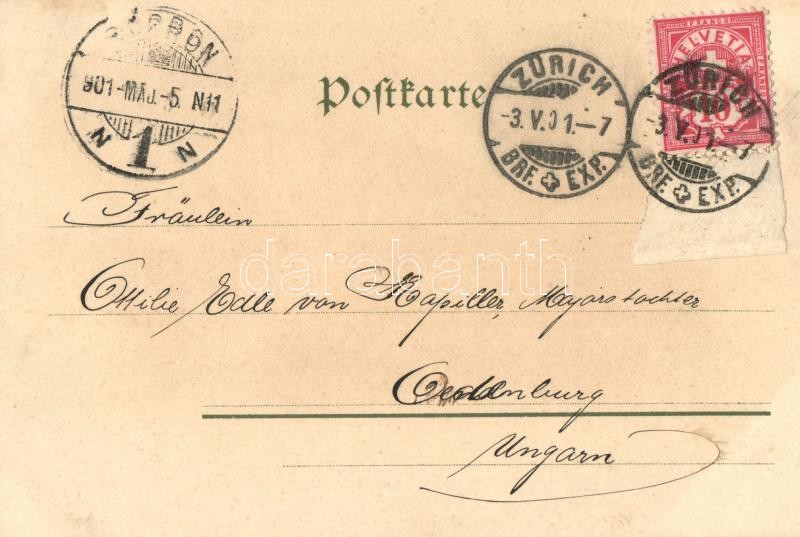 SOPRON
901-MÁJ.-5. N11
N 1 N
Postkarte
ZÜRICH
-3.V.01.-7
BRF. EXP.
FRANCO
HELVETIA
10
ZÜRICH
-3.V.01.-7
BRF. EXP.
Fräulein
Ottilie Edle von Kapiller, Majorstochter
Oedenburg
Ungarn
darabanth